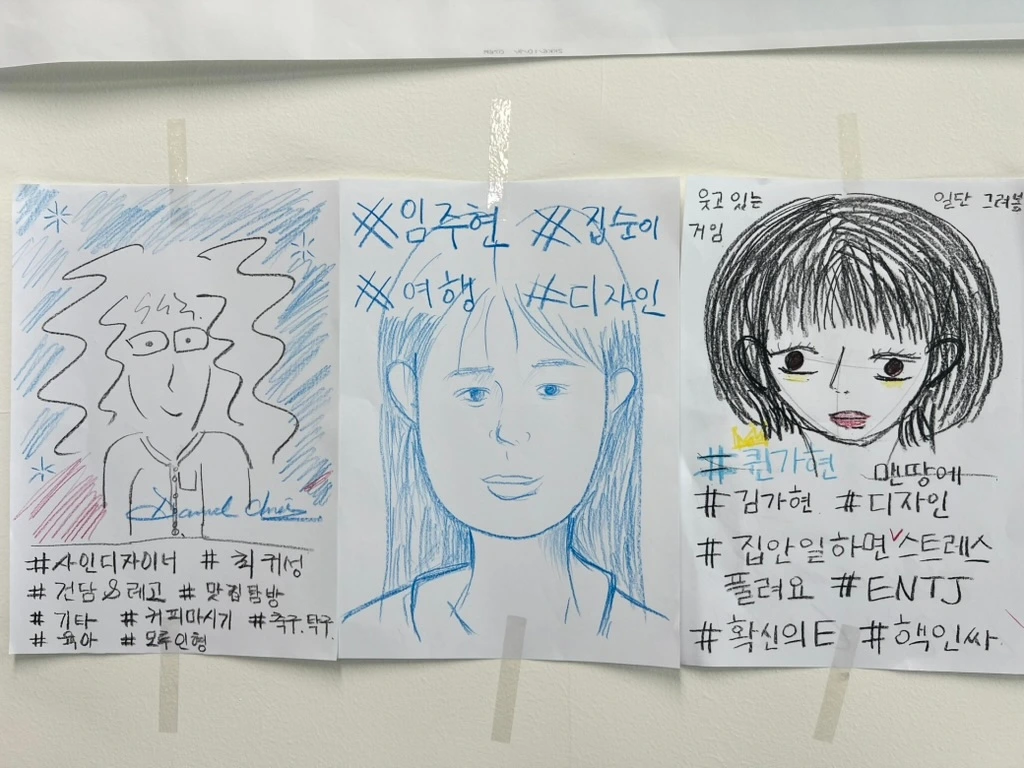 #사인디자이너 #최귀성
#건담&레고 #맛집탐방
#기타 #커피마시기 #축구.탁구.
#육아 #모루인형
#임주현 #집순이
#여행 #디자인
웃고 있는
거임
일단 그려봄
#퀸가현 맨땅에
#김가현 #디자인
#집안일하면 스트레스
풀려요 #ENTJ
#확신의E #핵인싸